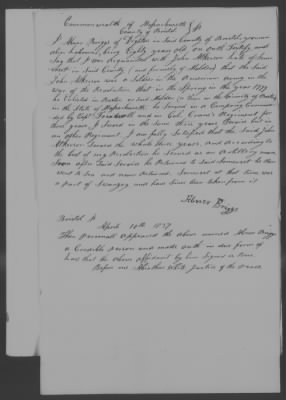 Commonwealth of Massachusetts
County of Bristol
I Abner Briggs of Dighton in Said County of Bristol, yeoman
being Eighty years old, on oath testify and
Say that I was acquainted with John Atherson late of Somer
Set in Said County & formerly of that the Said
John Atherson was a Soldier in the American Army in the
War of the Revolution, that in the Spring in the year 1779
he Enlisted in
in the State of Massachusetts he Served in a Company Commanded
by Capt and in Col. Regiment for
three years, I Served in the Same three years Service but in
an other Regiment. I am fully Satisfied that the Said John
Atherson Served the whole three years. And according to
the best of my Recollection he Served as an
Soon after Said Service he Returned to Said Somerset he then
went to Sea and never Returned. Somerset at that time was
a part of Swanzey and have Since been taken from it
Abner Briggs
Bristol
April 10th 1837
Then Personally Appeared the above named Abner Briggs
a Credible Person and made oath in due form of
Law that the above affidavit by him Signed is True
Before me White Justice of the Peace